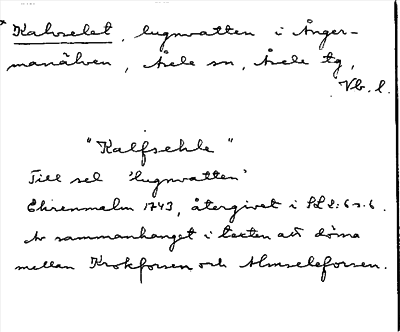 Kalvselet, lugnvatten i Ånger-
manälven, Åsele sn, Åsele tg,
Vb. l.
"Kalfsehle"
Till sel 'lugnvatten'
Ehrenmalm 1743, återgivet i SL 2:6 s. 6.
Av sammanhanget i texten att döma
mellan Krokforsen och Almseleforsen.